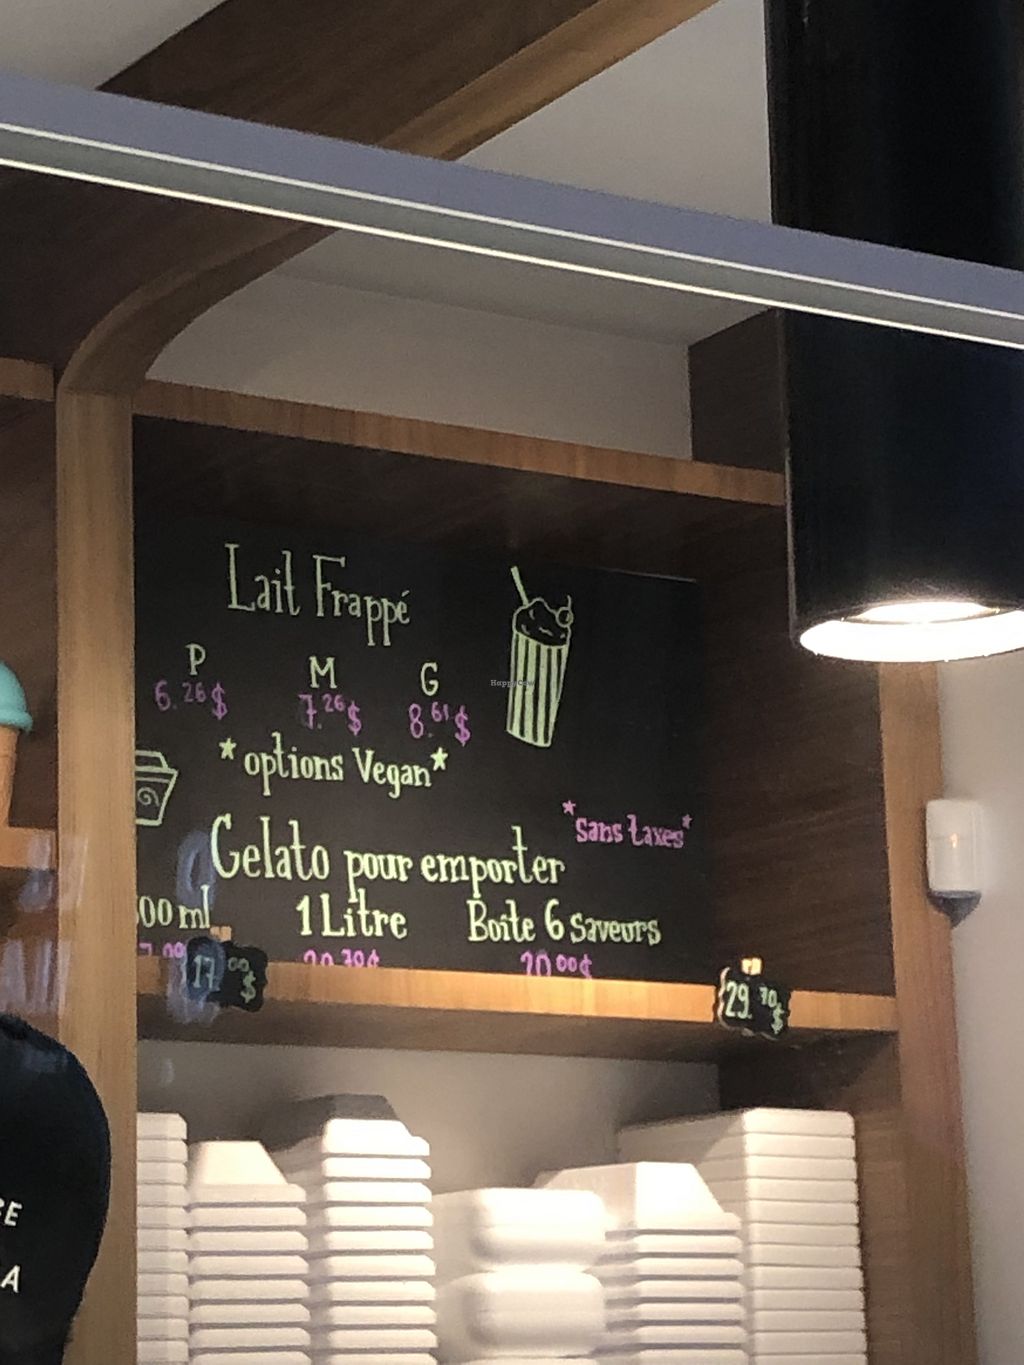 Lait Frappé
P M G
6.26$ 7.26$ 8.61$
*options Vegan*
*sans taxes*
Gelato pour emporter
00 ml 1 Litre Boite 6 saveurs
17.00$
29.70$
HappyCow